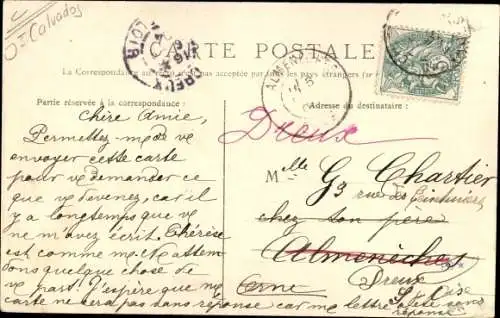 Dt Calvados
CARTE POSTALE
La Correspondance au recto n'est pas acceptée par tous les pays étrangers
Partie réservée à la correspondance :
Adresse du destinataire :
DREUX
ALMENÈCHES
Dreux
chère Amie,
Permettez-moi de ve
envoyer cette carte
pour ve demander ce
que ve devenez, car il
y a longtemps que ve
ne m'avez écrit. Thérèse
est comme moi. N'attem
dons quelque chose de
ve pas. J'espère que ma
carte ne sera pas dans réponse car me lettre a été sans
réponse
Mlle G. Chartier
93 rue des Teinturiers
chez son père
Almenèches
Orne
Dreux